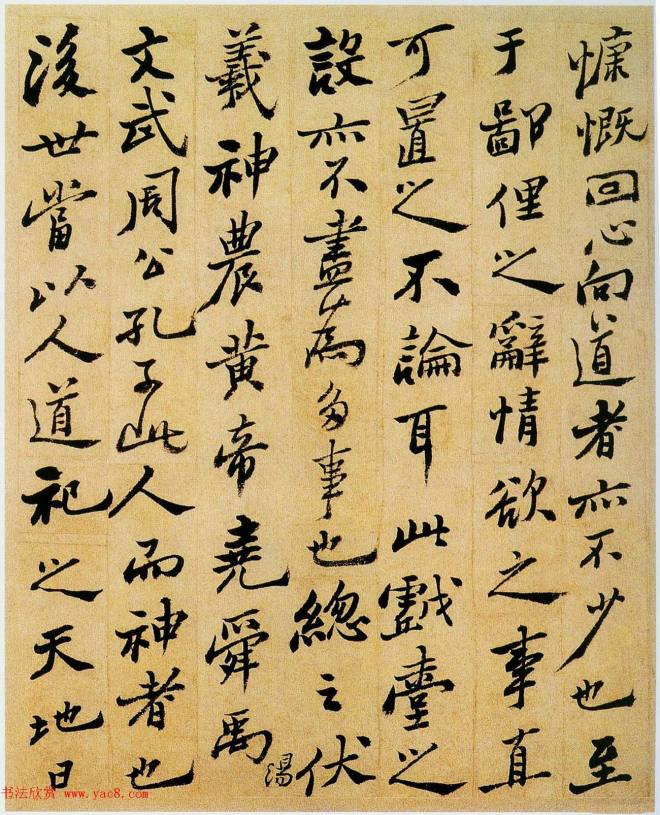 慷慨回心向道者亦不少也至
于鄙俚之辭情欲之事直
可置之不論耳此戲臺之
設亦不盡為多事也總之伏
羲神農黃帝堯舜禹湯
文武周公孔子此人而神者也
後世當以人道祀之天地日
书法欣赏 www.yac8.com